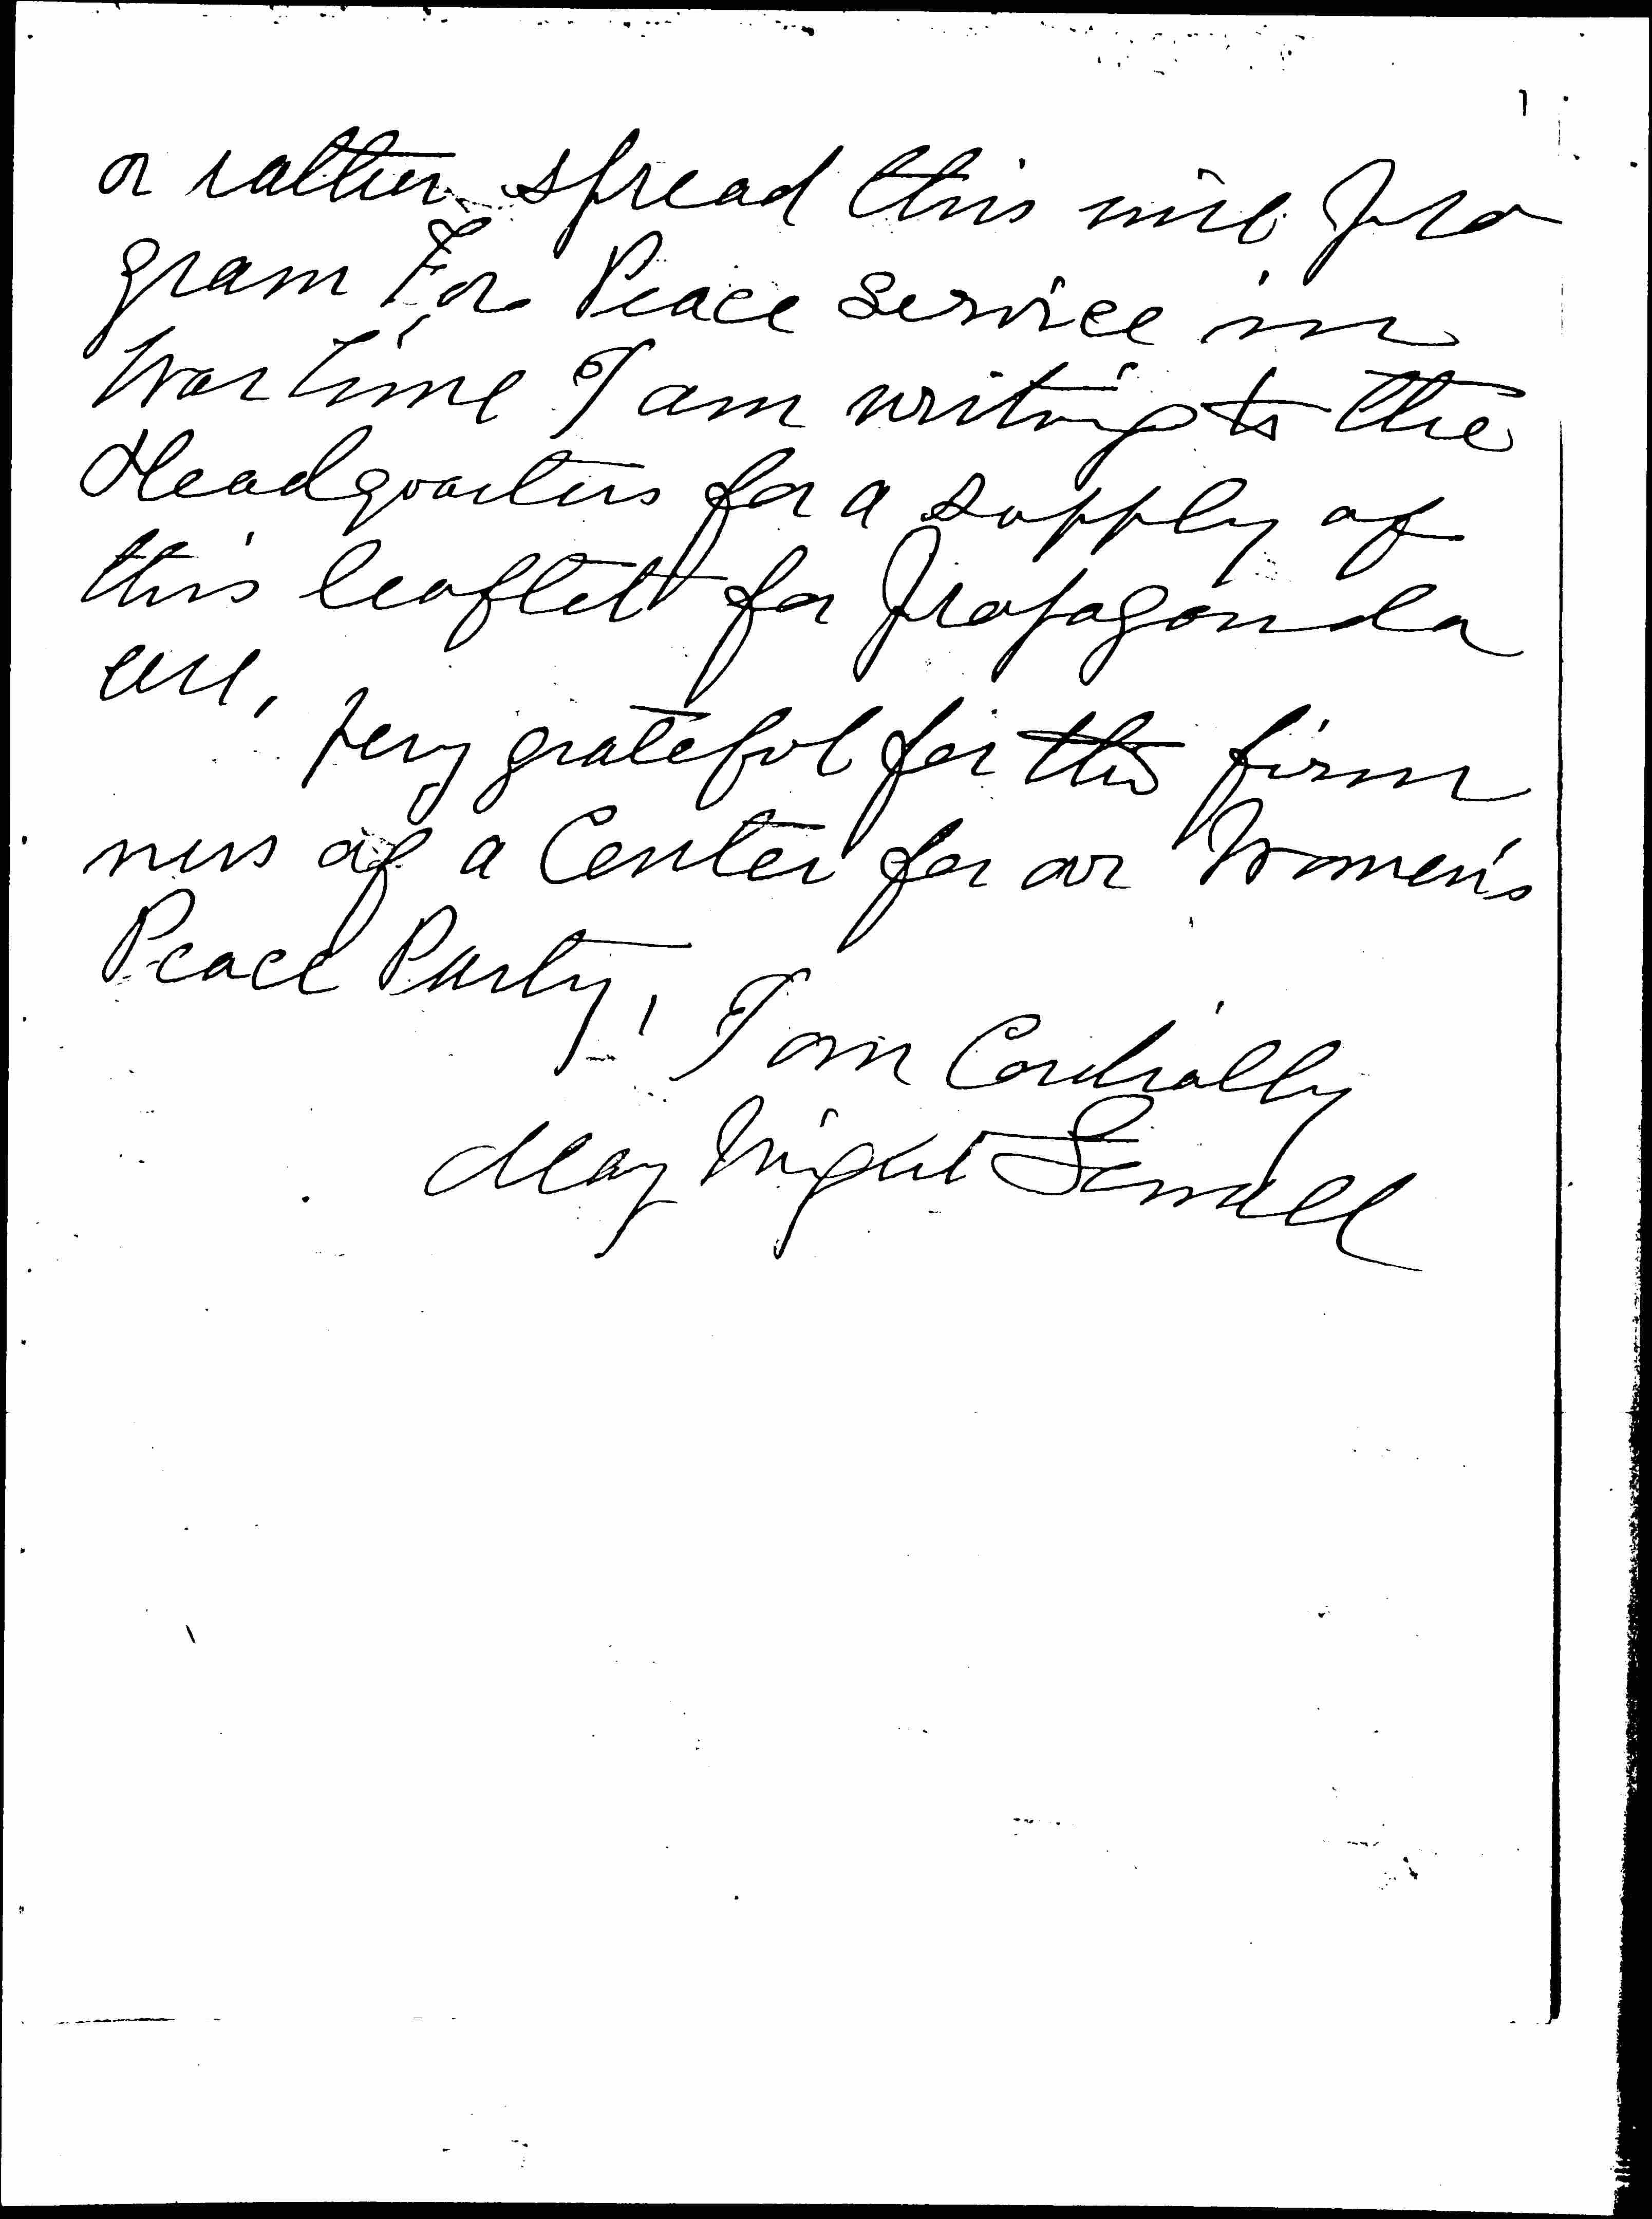 or rather spread this wise Pro
gram For Peace Service in
War time I am writing to the
Headquarters for a supply of
this leaflet for Propaganda
use,
Very grateful for the firm
ness of a Center for our Women's
Peace Party, I am Cordially
May Wright Sewall